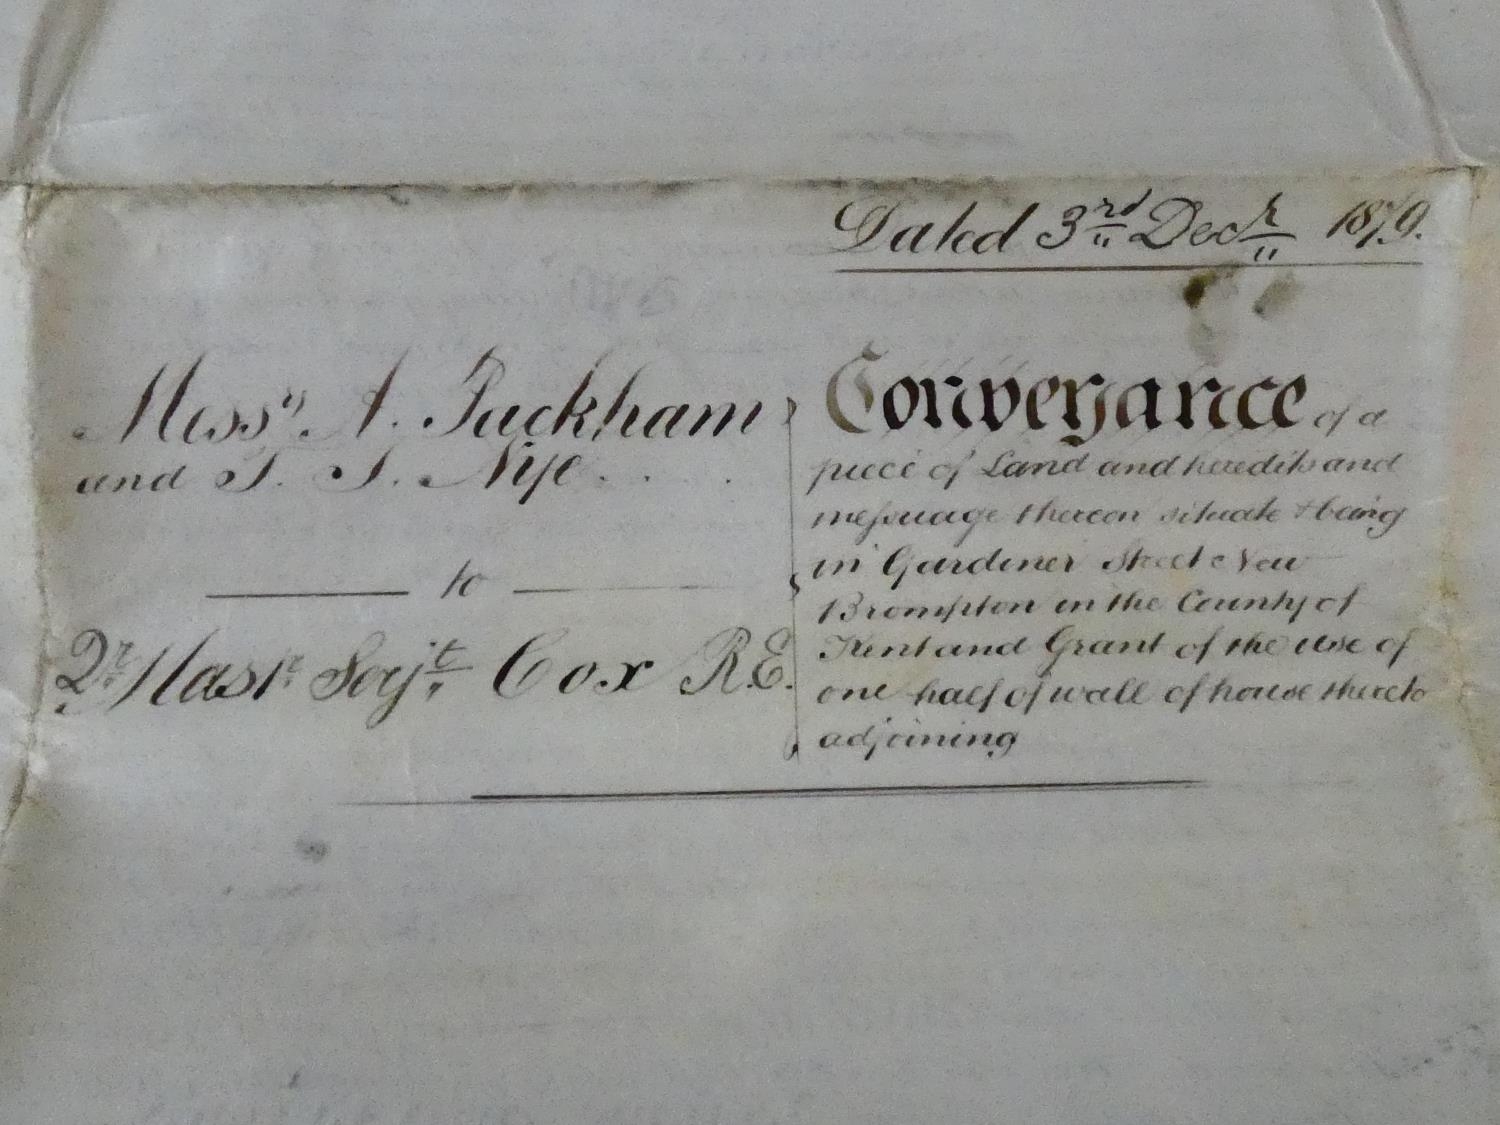 Dated 3rd Decr 1879.
Messrs A. Packham
and T. T. Nye
to
Qr Mastr Serjt Cox R.E.
Conveyance of a
piece of Land and heredits and
messuage thereon situate & being
in Gardiner Street New
Brompton in the County of
Kent and Grant of the use of
one half of wall of house thereto
adjoining